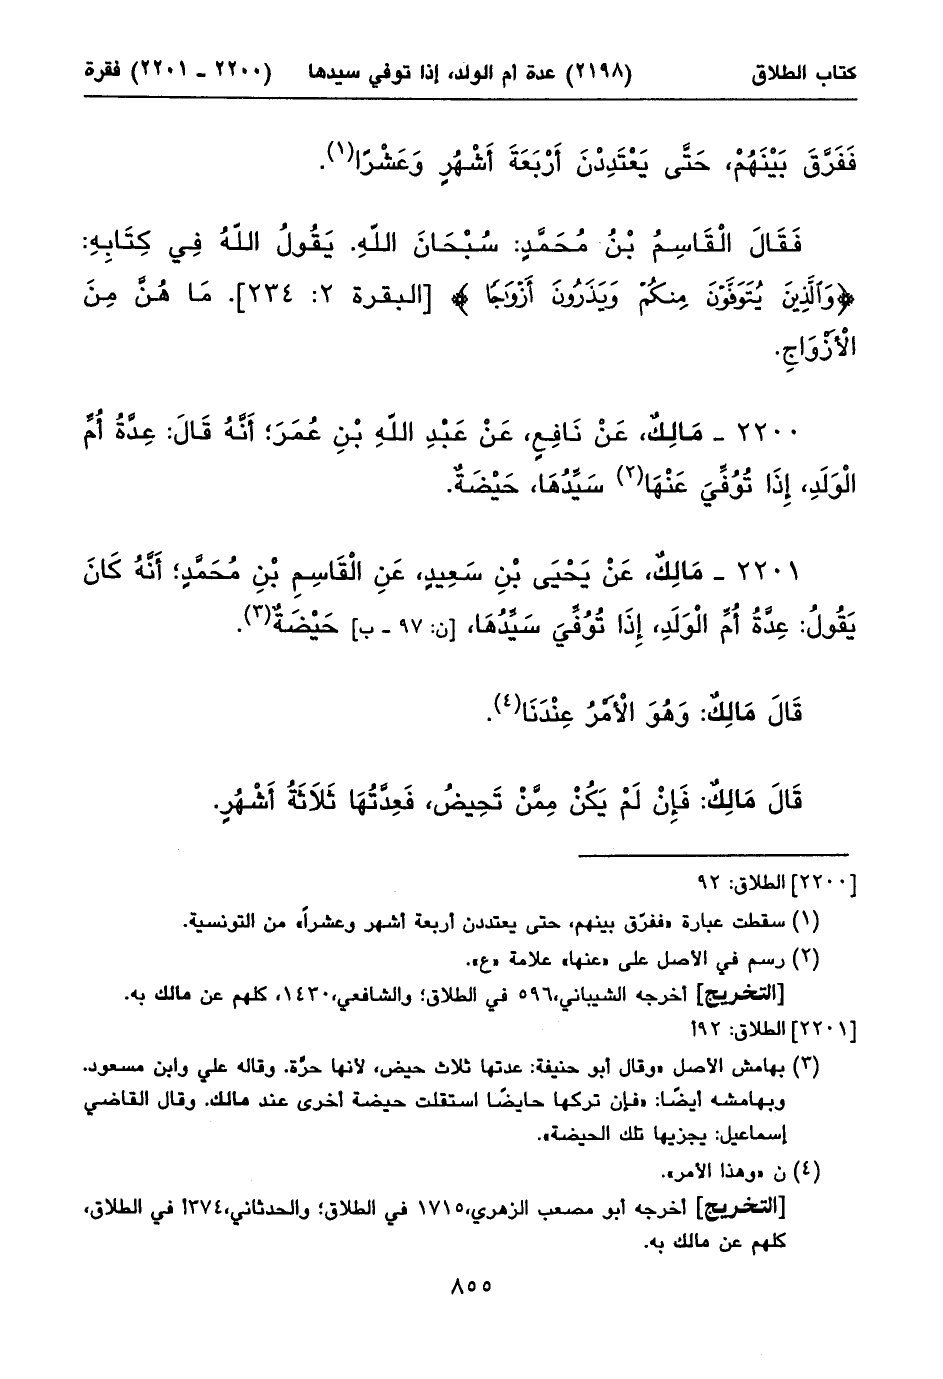 كتاب الطلاق (٢١٩٨) عدة أم الولد، إذا توفي سيدها (٢٢٠٠ ـ ٢٢٠١) فقرة
فَفَرَّقَ بَيْنَهُمْ، حَتَّى يَعْتَدِدْنَ أَرْبَعَةَ أَشْهُرٍ وَعَشْرًا(١).
فَقَالَ الْقَاسِمُ بْنُ مُحَمَّدٍ: سُبْحَانَ اللّهِ. يَقُولُ اللّهُ فِي كِتَابِهِ:
﴿وَٱلَّذِينَ يُتَوَفَّوْنَ مِنكُمْ وَيَذَرُونَ أَزْوَٰجًا﴾ [البقرة ٢: ٢٣٤]. مَا هُنَّ مِنَ
الْأَزْوَاجِ.
٢٢٠٠ ـ مَالِكٌ، عَنْ نَافِعٍ، عَنْ عَبْدِ اللّهِ بْنِ عُمَرَ؛ أَنَّهُ قَالَ: عِدَّةُ أُمِّ
الْوَلَدِ، إِذَا تُوُفِّيَ عَنْهَا(٢) سَيِّدُهَا، حَيْضَةٌ.
٢٢٠١ ـ مَالِكٌ، عَنْ يَحْيَى بْنِ سَعِيدٍ، عَنِ الْقَاسِمِ بْنِ مُحَمَّدٍ؛ أَنَّهُ كَانَ
يَقُولُ: عِدَّةُ أُمِّ الْوَلَدِ، إِذَا تُوُفِّيَ سَيِّدُهَا، [ن: ٩٧ ـ ب] حَيْضَةٌ(٣).
قَالَ مَالِكٌ: وَهُوَ الْأَمْرُ عِنْدَنَا(٤).
قَالَ مَالِكٌ: فَإِنْ لَمْ يَكُنْ مِمَّنْ تَحِيضُ، فَعِدَّتُهَا ثَلَاثَةُ أَشْهُرٍ.
[٢٢٠٠] الطلاق: ٩٢
(١) سقطت عبارة «ففرّق بينهم، حتى يعتددن أربعة أشهر وعشراً» من التونسية.
(٢) رسم في الأصل على «عنها» علامة «ع».
[التخريج] أخرجه الشيباني،٥٩٦ في الطلاق؛ والشافعي،١٤٣٠، كلهم عن مالك به.
[٢٢٠١] الطلاق: ٩٢أ
(٣) بهامش الأصل «وقال أبو حنيفة: عدتها ثلاث حيض، لأنها حرَّة. وقاله علي وابن مسعود.
وبهامشه أيضًا: «فإن تركها حايضًا استقلت حيضة أخرى عند مالك. وقال القاضي
إسماعيل: يجزيها تلك الحيضة».
(٤) ن «وهذا الأمر».
[التخريج] أخرجه أبو مصعب الزهري،١٧١٥ في الطلاق؛ والحدثاني،٣٧٤أ في الطلاق،
كلهم عن مالك به.
٨٥٥